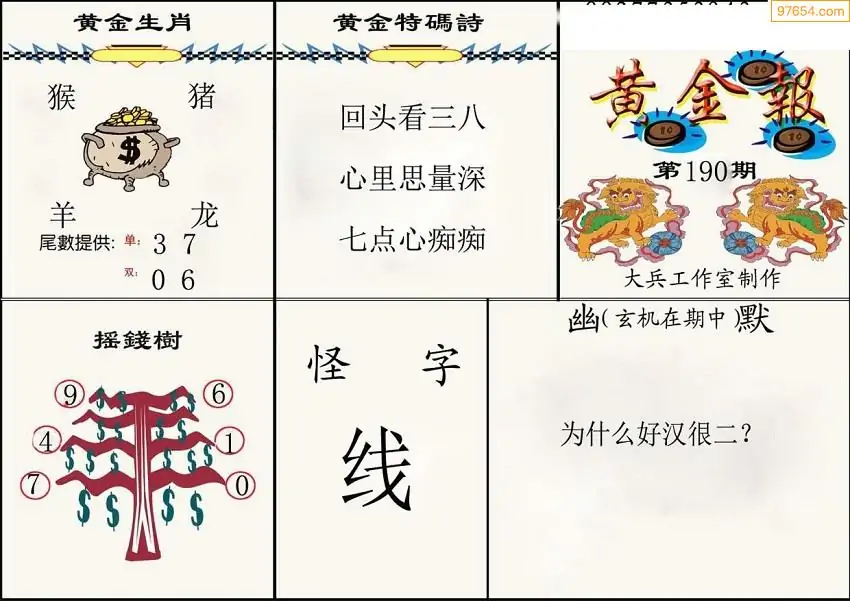 97654.com
黄金生肖
猴 猪
$
羊 龙
尾數提供: 单: 3 7
双: 0 6
黄金特碼詩
回头看三八
心里思量深
七点心痴痴
黄金報
第190期
大兵工作室制作
摇錢樹
9 6
4 1
7 0
怪 字
线
幽(玄机在期中)默
为什么好汉很二?